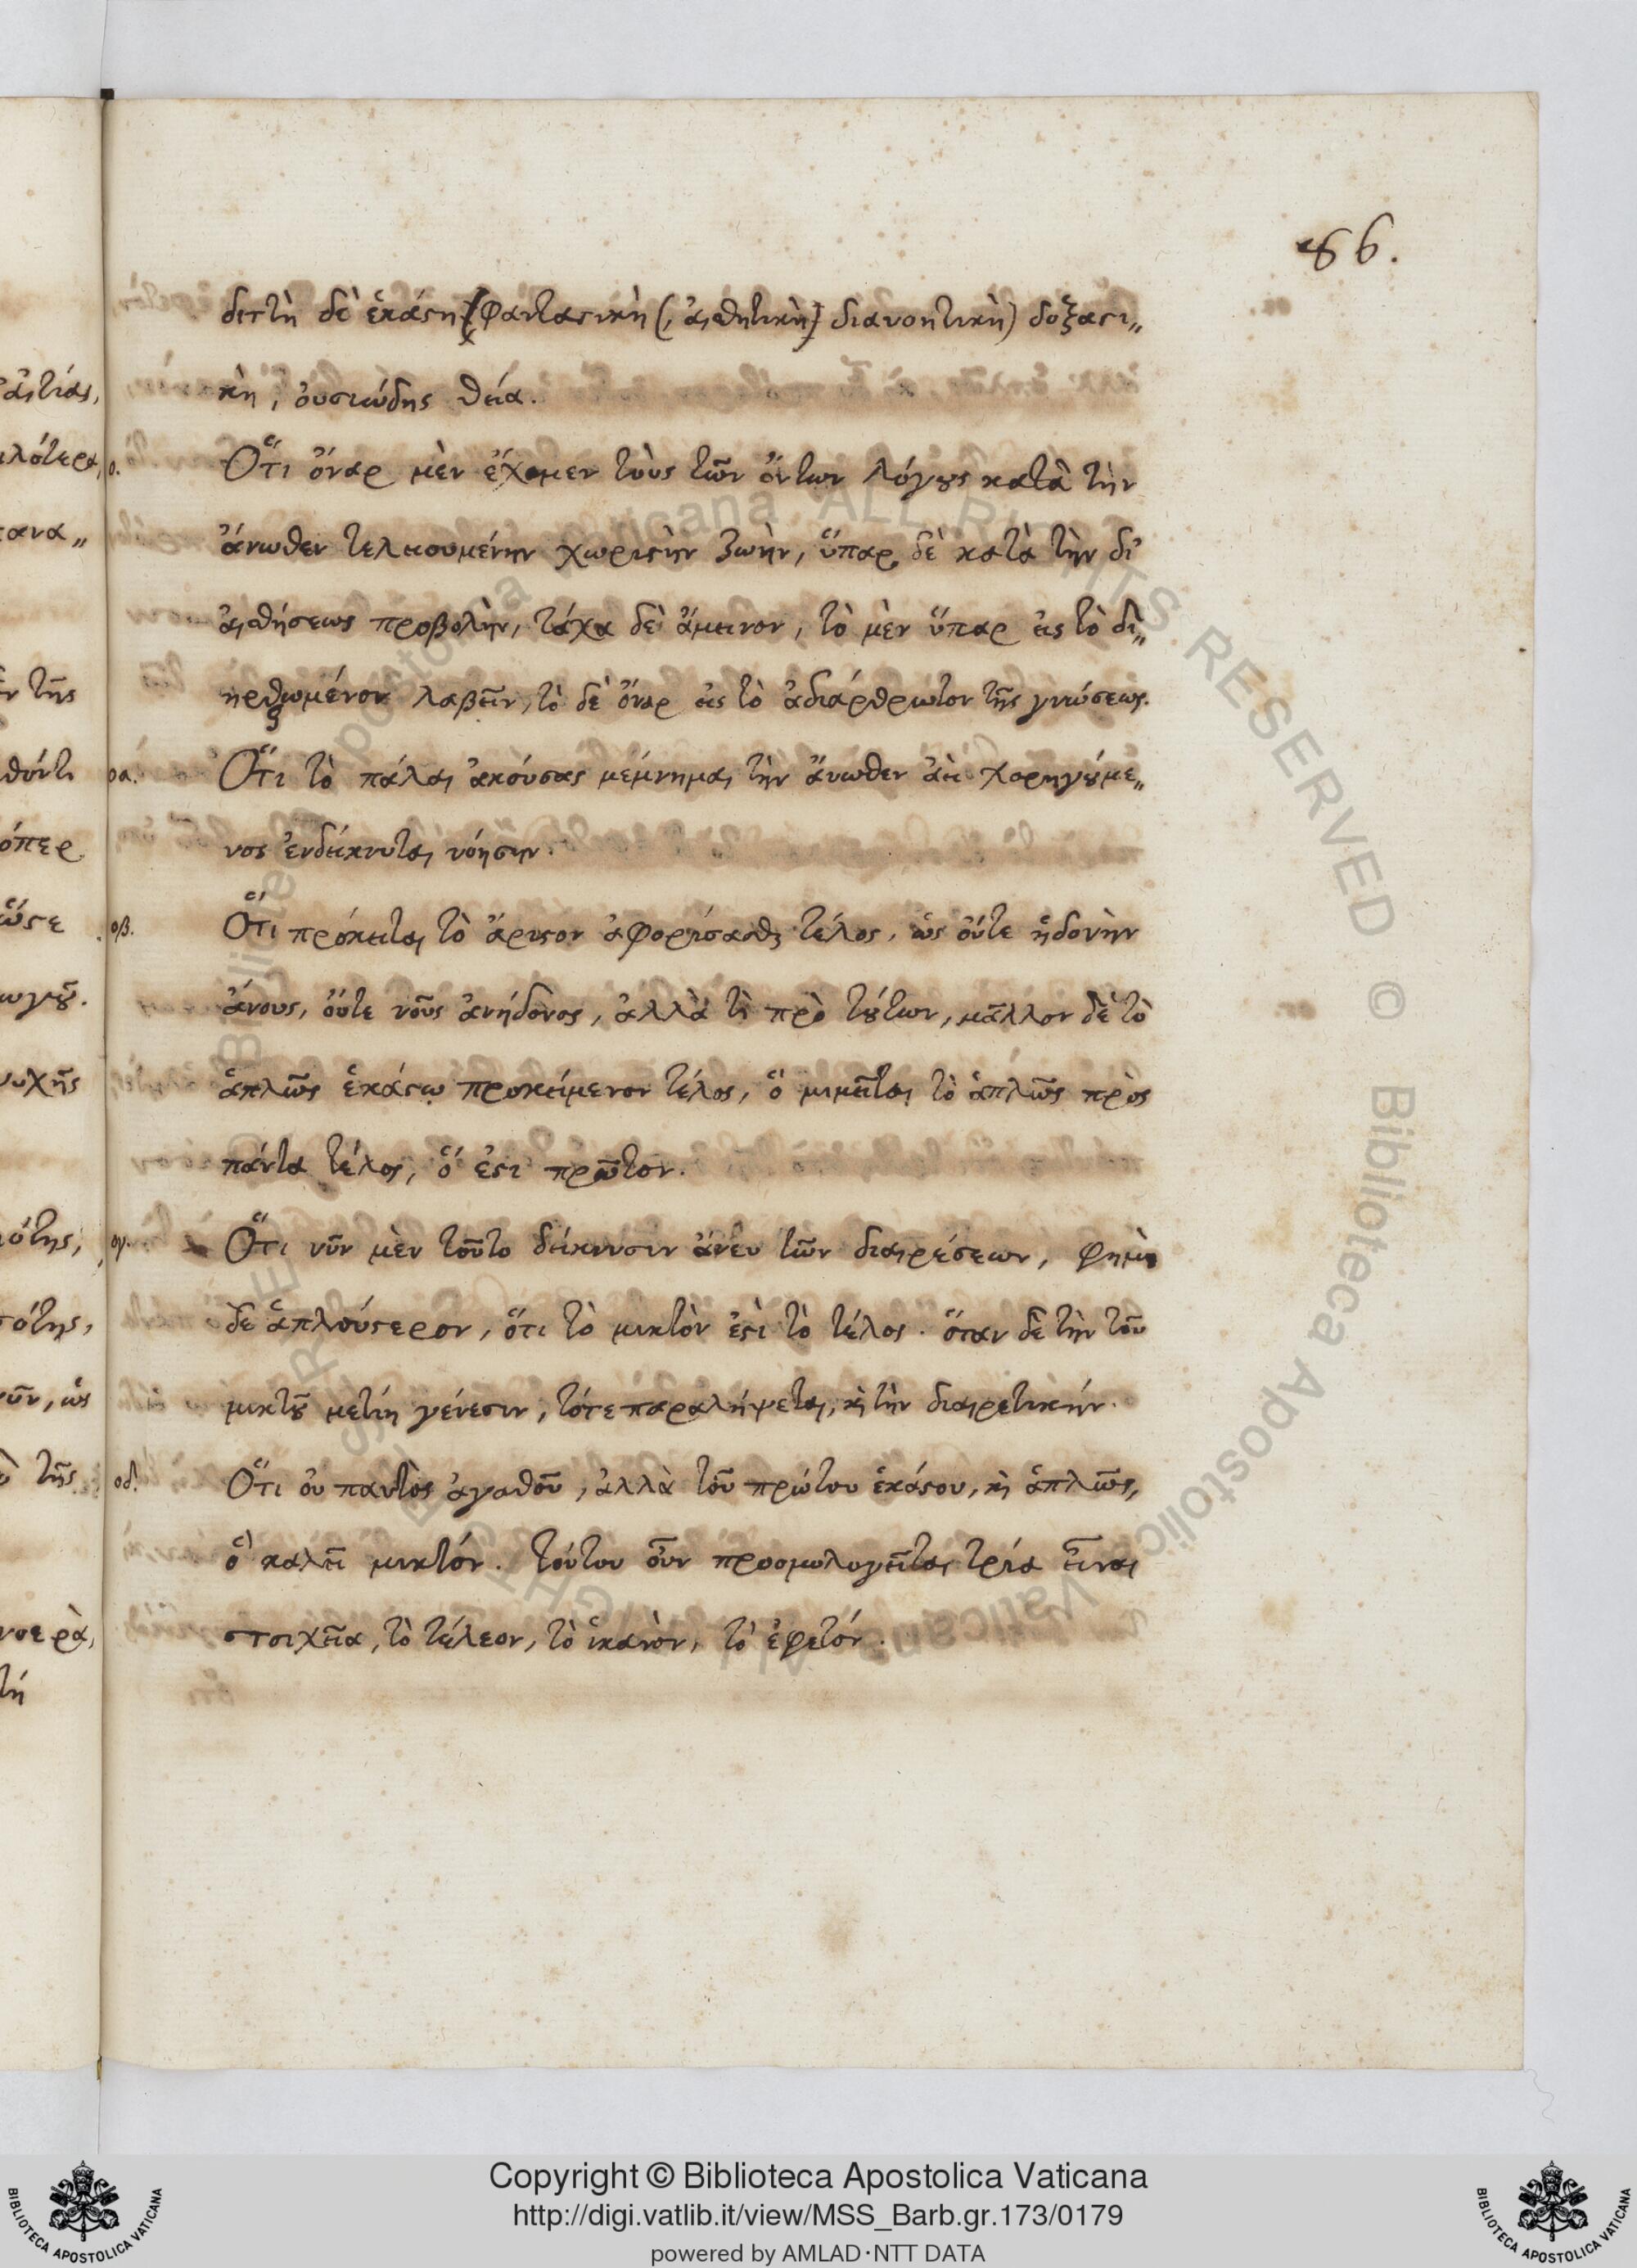 86.
διττὴ δὲ ἑκάστη (φανταστικὴ (, αἰσθητικὴ) διανοητικὴ) δοξαστι„
κὴ, οὐσιώδης θεία.
ο. Ὅτι ὄναρ μὲν ἔχομεν τοὺς τῶν ὄντων λόγους κατὰ τὴν
ἄνωθεν τελειουμένην χωριστὴν ζωὴν, ὕπαρ δὲ κατὰ τὴν δι'
αἰσθήσεως προβολὴν, τάχα δὲ ἄμεινον, τὸ μὲν ὕπαρ εἰς τὸ δι„
ηρθρωμένον λαβεῖν, τὸ δὲ ὄναρ εἰς τὸ ἀδιάρθρωτον τῆς γνώσεως.
οα. Ὅτι τὸ πάλαι ἀκούσας μέμνημαι τὴν ἄνωθεν ἀεὶ χορηγουμέ„
νος ἐνδείκνυται νόησιν.
οβ. Ὅτι πρόκειται τὸ ἄριστον ἀφορίσασθαι τέλος, ὡς οὔτε ἡδονὴν
ἄνους, οὔτε νοῦς ἀνήδονος, ἀλλὰ τὶ πρὸ τούτων, μᾶλλον δὲ τὸ
ἁπλῶς ἑκάστῳ προκείμενον τέλος, ὃ μιμεῖται τὸ ἁπλῶς πρὸς
πάντα τέλος, ὅ ἐστι πρῶτον.
ογ. Ὅτι νῦν μὲν τοῦτο δείκνυσιν ἄνευ τῶν διαιρέσεων, φημὶ
δὲ ἁπλούστερον, ὅτι τὸ μικτὸν ἐστὶ τὸ τέλος. ὅταν δὲ τὴν τοῦ
μικτοῦ μετίῃ γένεσιν, τότε παραλήψεται, καὶ τὴν διαιρετικήν.
οδ. Ὅτι οὐ παντὸς ἀγαθοῦ, ἀλλὰ τοῦ πρώτου ἑκάστου, καὶ ἁπλῶς,
ὃ καλεῖ μικτόν. τούτου οὖν προομολογεῖται τρία εἶναι
στοιχεῖα, τὸ τέλεον, τὸ ἱκανὸν, τὸ ἐφετόν.
Copyright © Biblioteca Apostolica Vaticana
http://digi.vatlib.it/view/MSS_Barb.gr.173/0179
powered by AMLAD·NTT DATA
BIBLIOTECA APOSTOLICA VATICANA
BIBLIOTECA APOSTOLICA VATICANA